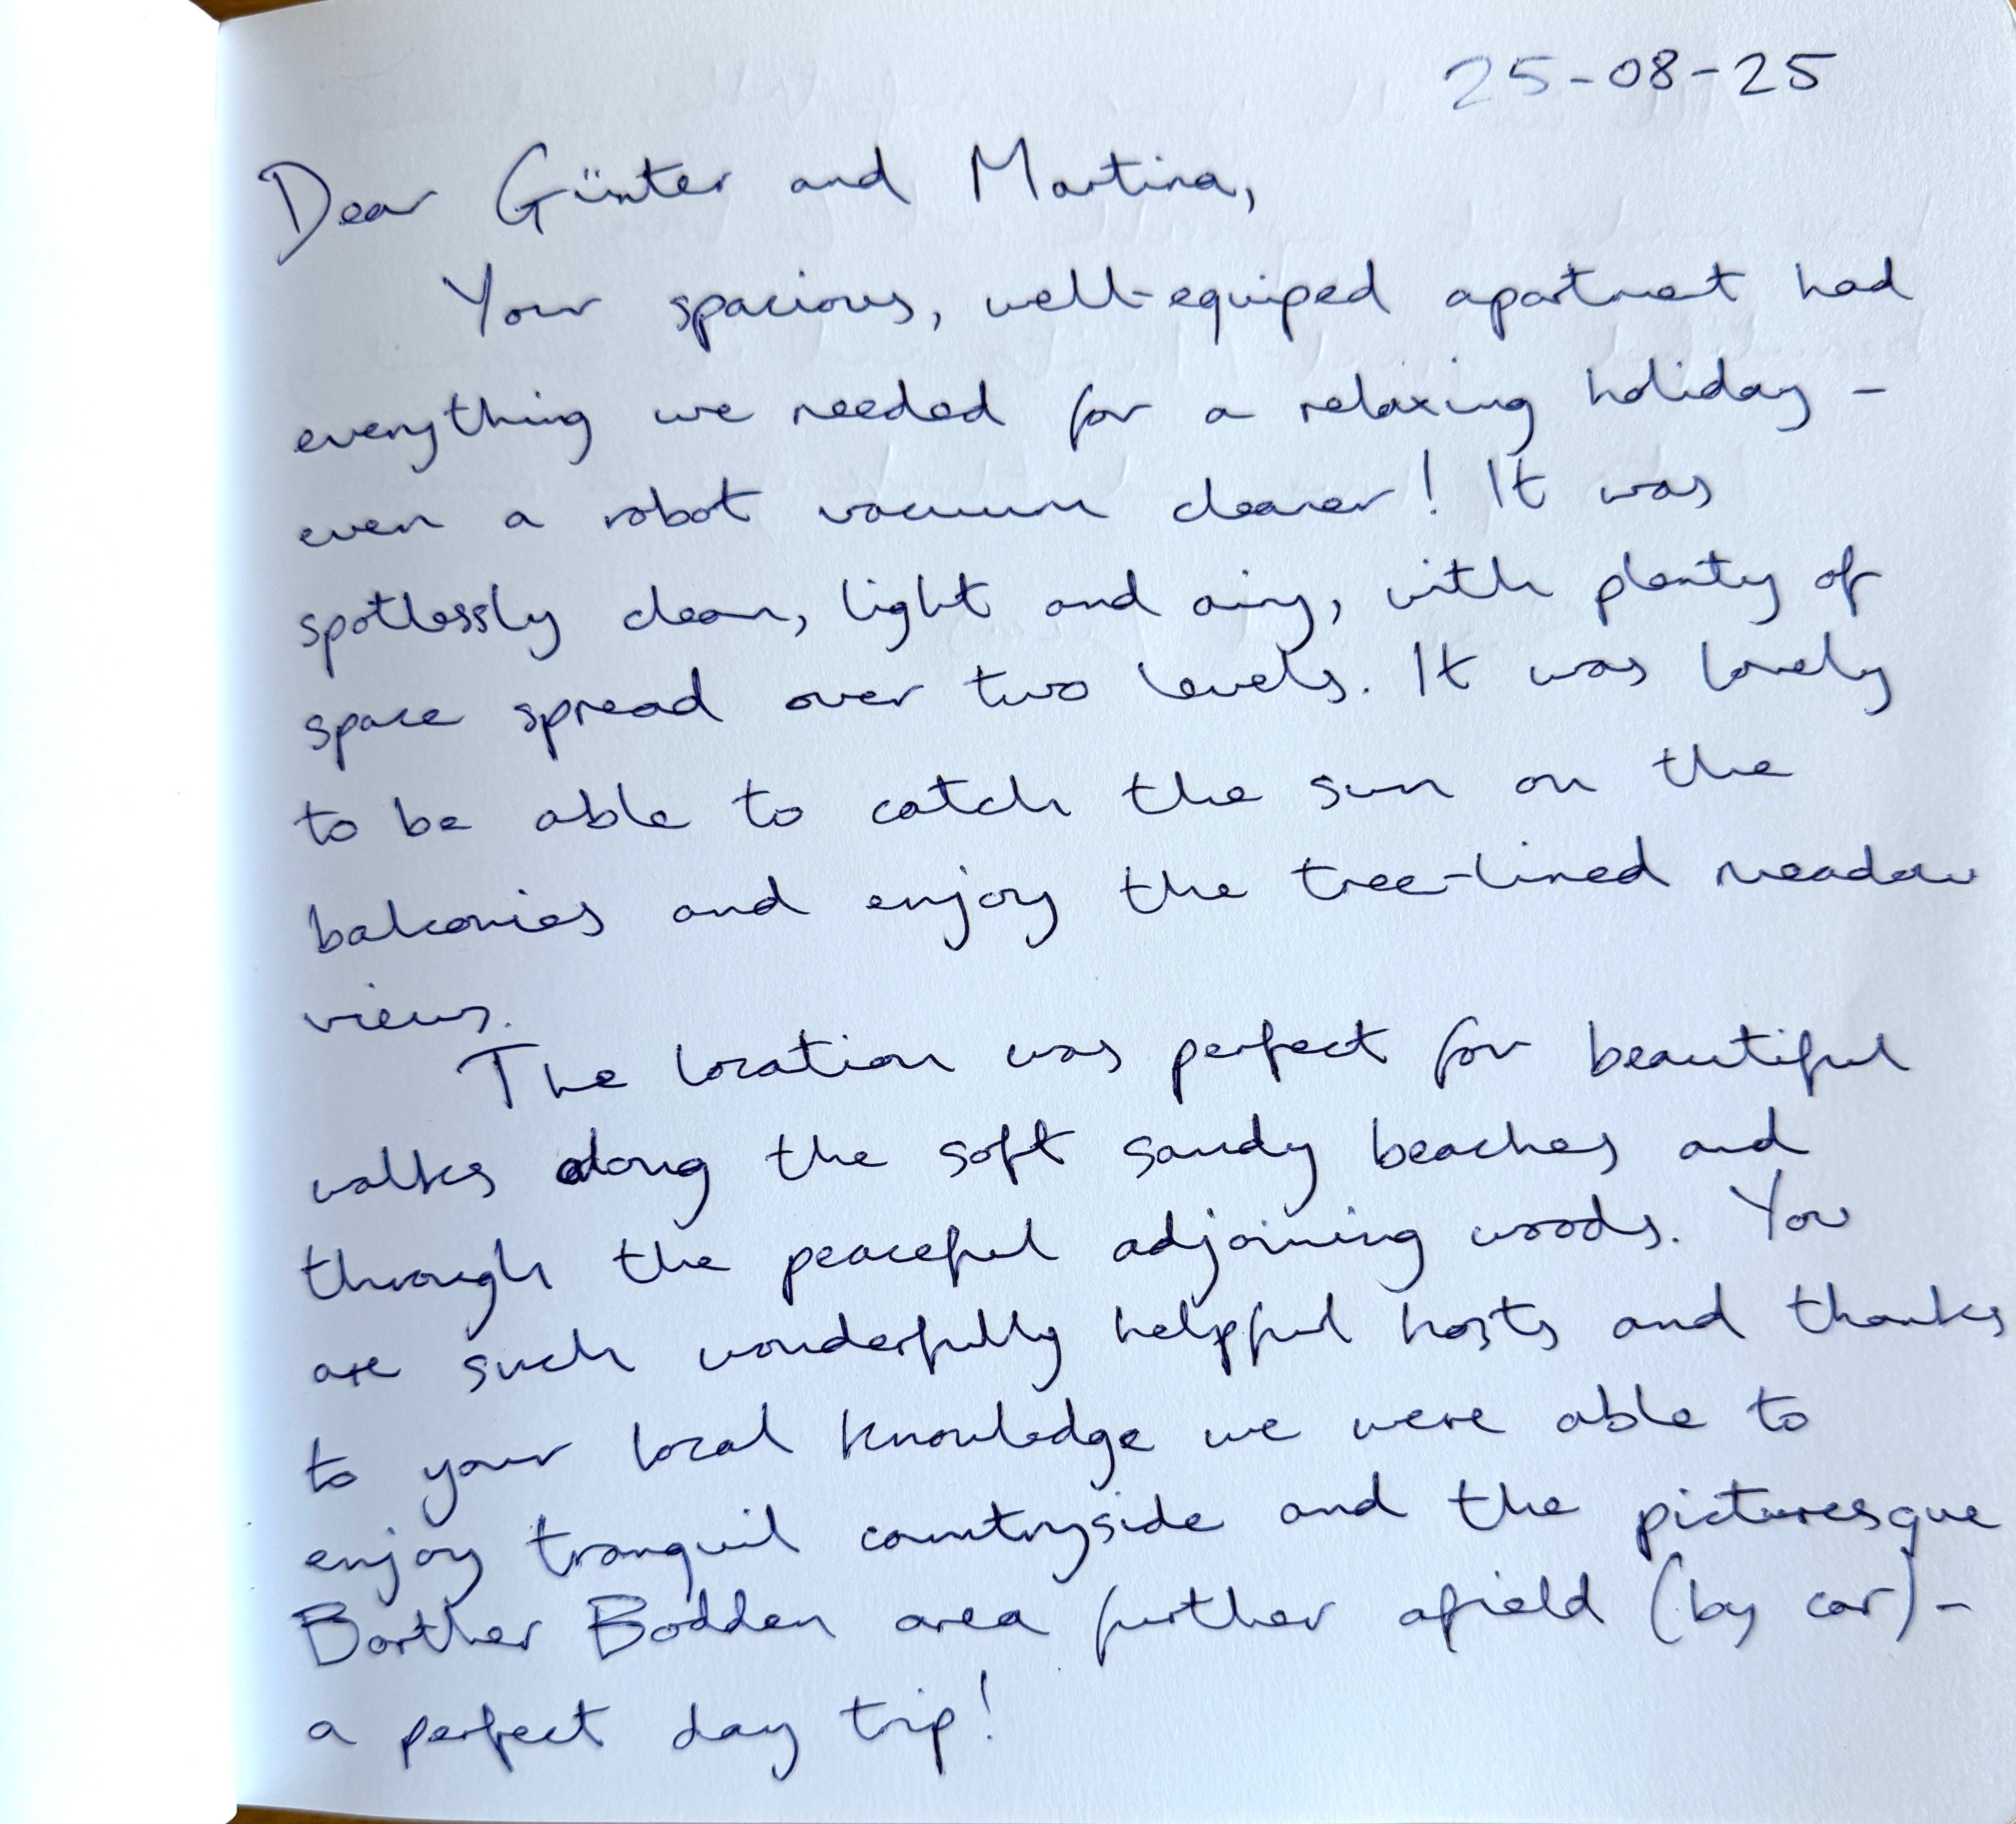 25-08-25
Dear Günter and Martina,
Your spacious, well-equiped apartment had
everything we needed for a relaxing holiday -
even a robot vacuum cleaner! It was
spotlessly clean, light and airy, with plenty of
space spread over two levels. It was lovely
to be able to catch the sun on the
balconies and enjoy the tree-lined meadow
views.
The location was perfect for beautiful
walks along the soft sandy beaches and
through the peaceful adjoining woods. You
are such wonderfully helpful hosts and thanks
to your local knowledge we were able to
enjoy tranquil countryside and the picturesque
Barther Bodden area further afield (by car) -
a perfect day trip!